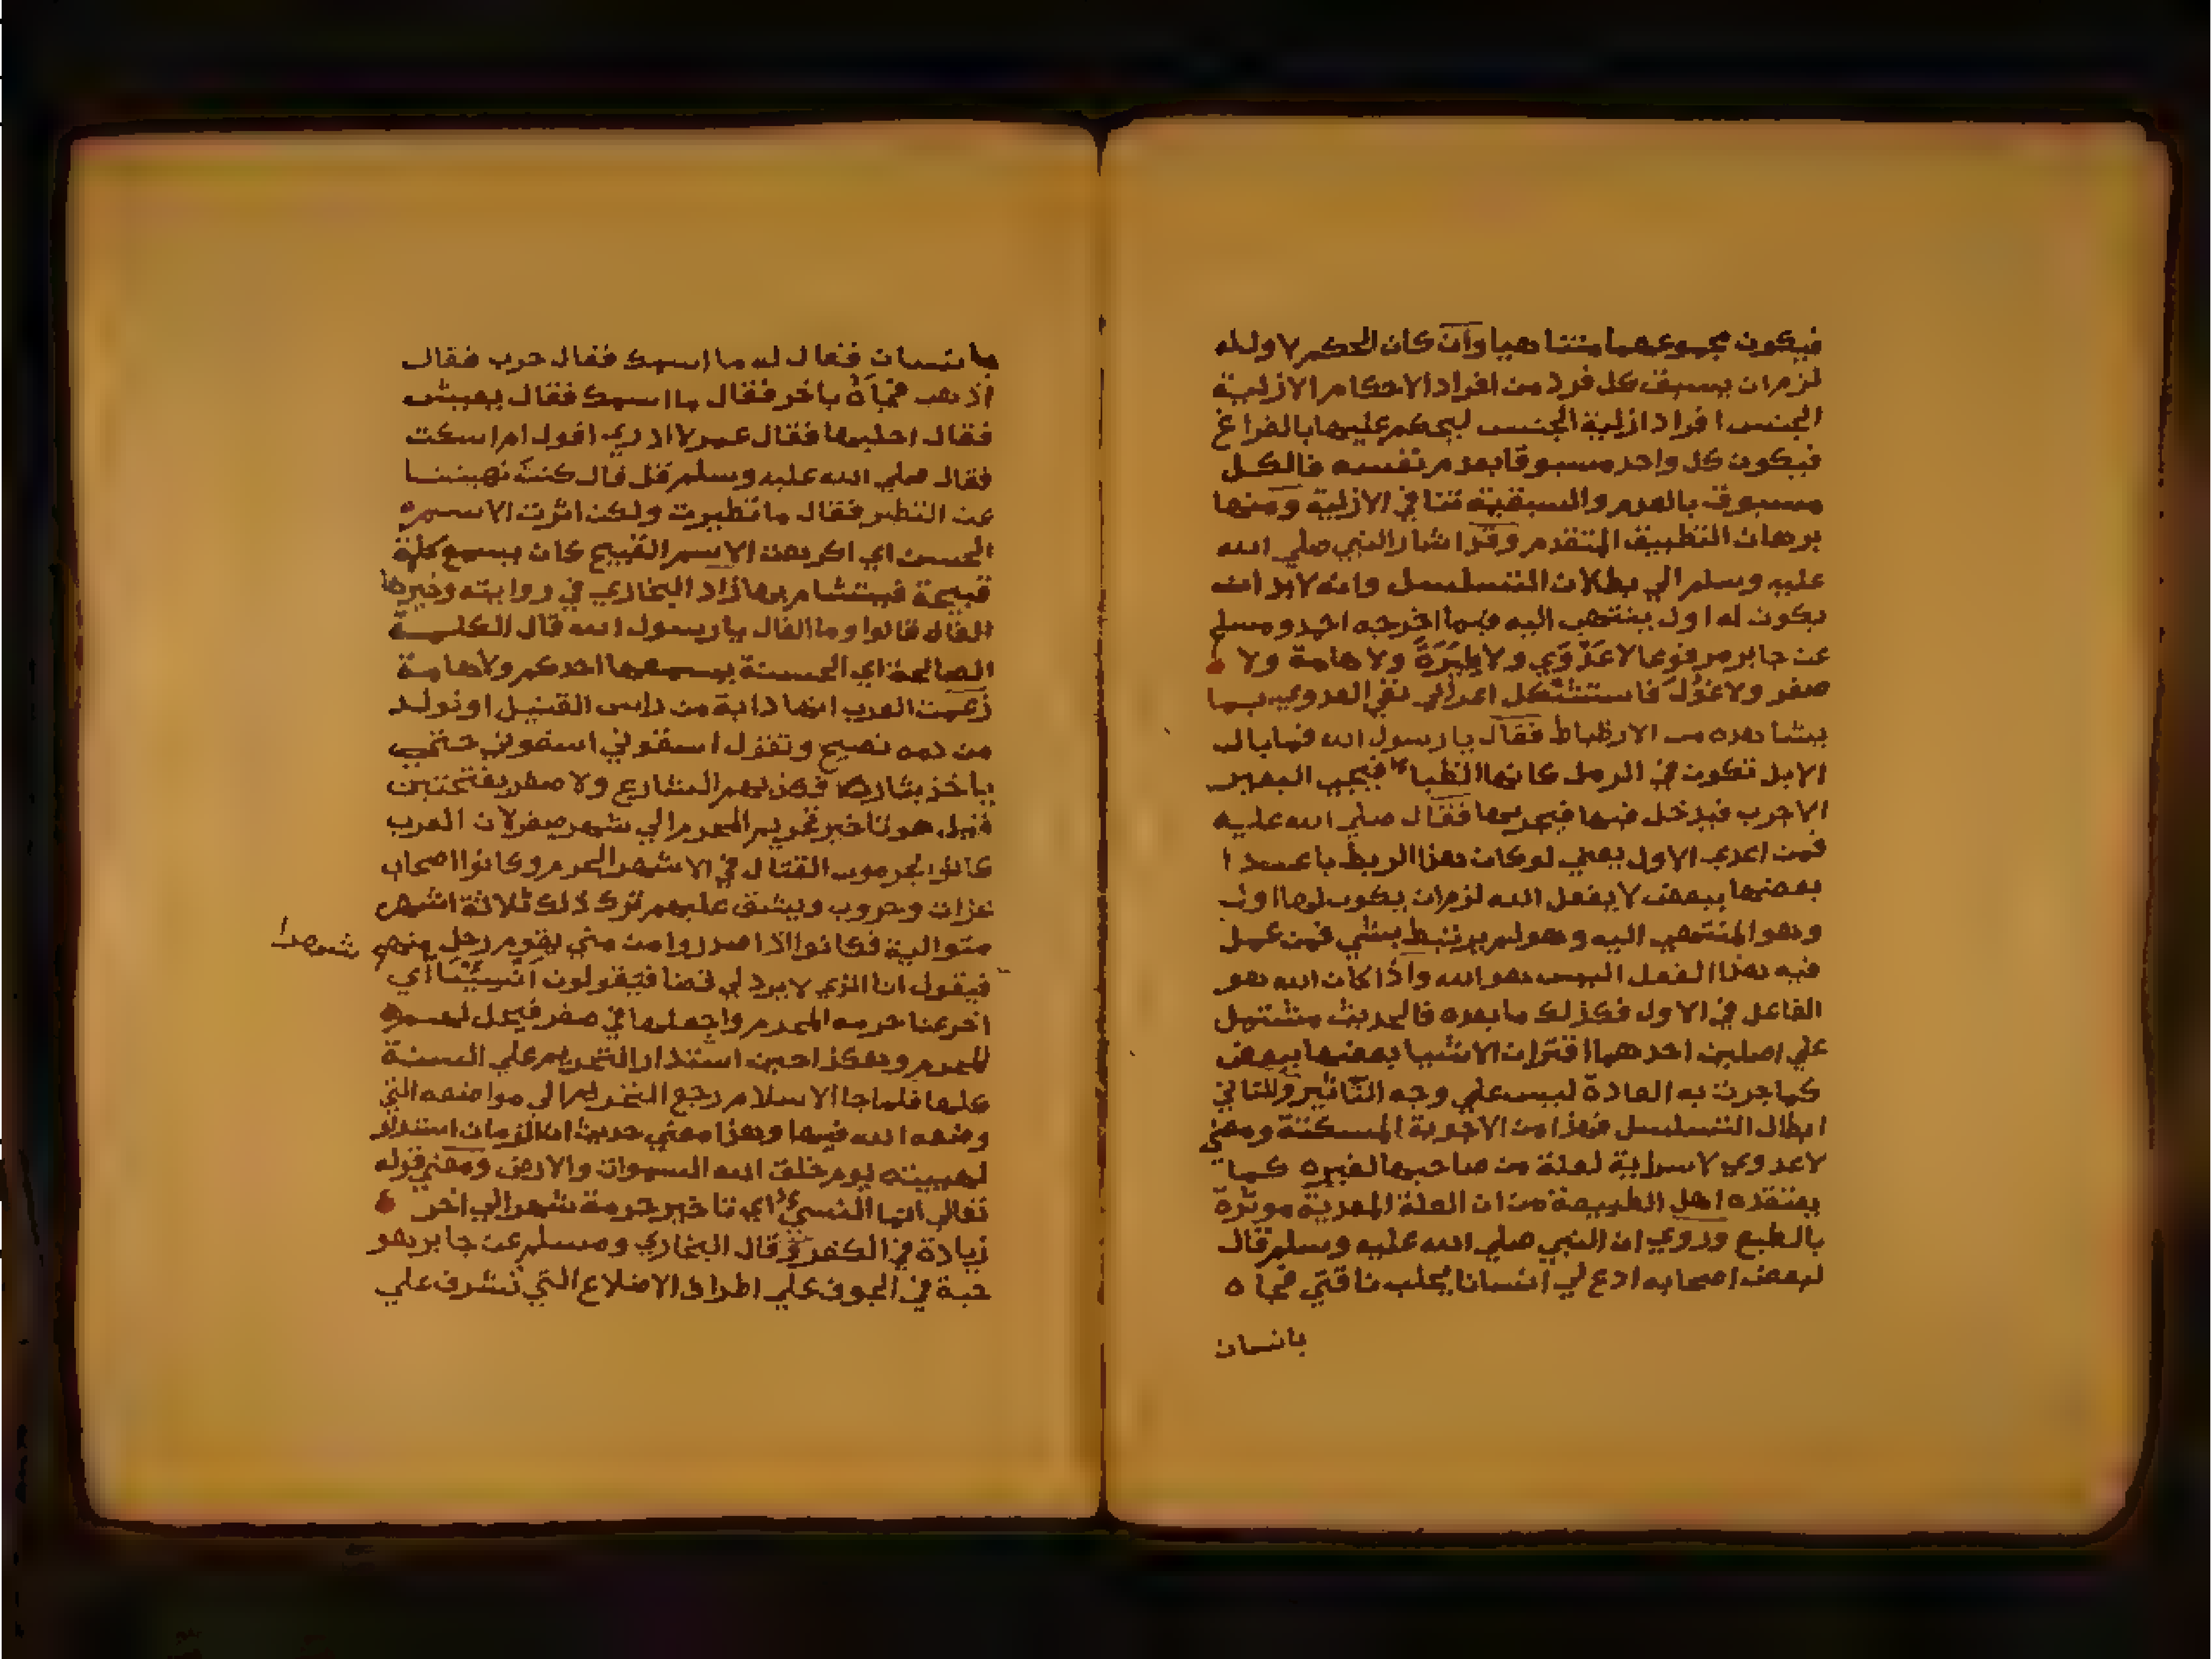 فيكون مجموعهما متناهيا وان كان الحكم لا ول له
لزم ان يسبق كل فرد من افراد الاحكام الازلية
الجنس افراد ازلية الجنس ليحكم عليها بالفراغ
فيكون كل واحد مسبوقا بعدم نفسه فالكل
مسبوق بالعدم والسبقية تنافي الازلية ومنها
برهان التطبيق المتقدم وقد اشار النبي صلي الله
عليه وسلم الي بطلان التسلسل وانه لابد ان
يكون له اول ينتهي اليه فيما اخرجه احمد ومسلم
عن جابر مرفوعا لا عَدْوَي ولا طِيَرَةَ ولا هامة ولا
صفر ولا غُوْلَ فاستشكل اعرابي نفي العدوي بما
يشاهده من الارتباط فقال يا رسول الله فما بال
الابل تكون في الرمل كانها الظبا فيجي البعير
الاجرب فيدخل فيها فيجربها فقال صلي الله عليه
فمن اعدي الاول يعني لو كان هذا الربط باعدا
بعضها ببعض لا بفعل الله لزم ان يكون لها اول
وهو المنتهي اليه وهو لم يرتبط بشي فمن عمل
فيه هذا الفعل اليس هو الله واذا كان الله هو
الفاعل في الاول فكذلك ما بعده فالحديث مشتمل
علي اصلين احدهما اقتران الاشيا بعضها ببعض
كما جرت به العادة ليس علي وجه التاثير والثاني
ابطال التسلسل فهذا من الاجوبة المسكتة ومعني
لا عدوي لا سراية لعلة من صاحبها لغيره كما
يعتقده اهل الطبيعة من ان العلة المعدية موثرة
بالطبع وروي ان النبي صلي الله عليه وسلم قال
لبعض اصحابه ادع لي انسانا يحلب ناقتي فجاه
بانسان
بانسان فقال له ما اسمك فقال حرب فقال
اذهب فجاَهُ باخر فقال ما اسمك فقال يعيش
فقال احلبها فقال عمر لا ادري اقول ام اسكت
فقال صلي الله عليه وسلم قل قال كنت نهيتنا
عن التطير فقال ما تطيرت ولكن اثرت الاسم
الحسن اي اكرهت الاسم القبيح كان يسمع كلمة
قبيحة فيتشام بها زاد البخاري في روايته وخيرها
الفال قالوا وما الفال يا رسول الله قال الكلمة
الصالحة اي الحسنة يسمعها احدكم ولا هامة
زعمت العرب انها دابة من راس القتيل او تولد
من دمه تصيح وتقول اسقوني اسقوني حتي
ياخذ بثاره فكذبهم الشارع ولا صفر بفتحتين
قيل هو تاخير تحريم المحرم الي شهر صفر لان العرب
كانوا يحرمون القتال في الاشهر الحرم وكانوا اصحاب
غزات وحروب ويشق عليهم ترك ذلك ثلاثة اشهر
متوالية فكانوا اذا صدروا من مني يقوم رجل منهم
فيقول انا الذي لا يرد لي قضا فيقولون انسيئنا اي
شهرا
اخر عنا حرمه المحرم واجعلها في صفر فيحل لهم
المحرم وهكذا حين استدار التحريم علي السنة
علها فلما جا الاسلام رجع التحريم الي مواضعه التي
وضعه الله فيها وهذا معني حديث ان الزمان استدار
لهيئته يوم خلق الله السموات والارض ومعني قوله
تعالي انما النسيُ اي تاخير حرمة شهر الي اخر
زيادة في الكفر وقال البخاري ومسلم عن جابر هو
حية في الجوف علي اطراف الاضلاع التي تشرف علي